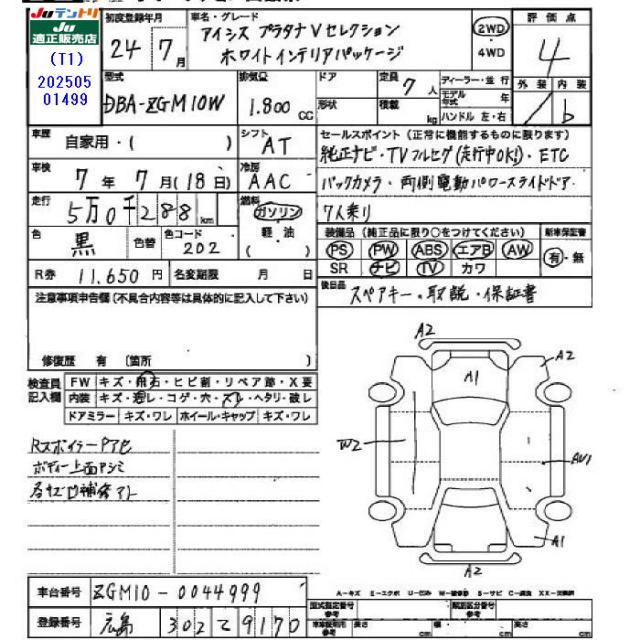 JUテントリ
JU
適正販売店
(T1)
202505
01499
初度登録年月
24年7月
車名・グレード
アイシス プラタナVセレクション
ホワイトインテリアパッケージ
2WD
4WD
評価点
4
外装 内装
b
型式
DBA-ZGM10W
排気量
1.800cc
ドア
形状
定員
7人
積載
kg
ディーラー・並行
モデル年式 年
ハンドル 左・右
車歴
自家用・( )
シフト
AT
セールスポイント(正常に機能するものに限ります)
純正ナビ・TVフルセグ(走行中OK!)・ETC
バックカメラ・両側電動パワースライドドア・
7人乗り
車検
7年7月(18日)
冷房
AAC
走行
5万0千288km
燃料
ガソリン
軽・油
( )
色
黒
色替
色コード
202
装備品(純正品に限り○をつけてください)
PS PW ABS エアB AW
SR ナビ TV カワ
新車保証書
有・無
R券
11,650円
名変期限 月 日
後日品
スペアキー・取説・保証書
注意事項申告欄(不具合内容等は具体的に記入して下さい)
修復歴 有(箇所 )
検査員記入欄
FW キズ・飛石・ヒビ割・リペア跡・X要
内装 キズ・汚レ・コゲ・穴・スレ・ヘタリ・破レ
ドアミラー キズ・ワレ ホイール・キャップ キズ・ワレ
ボディー上面
A2
A2
A1
W2
A1
A2
車台番号
ZGM10-0044999
登録番号
広島 302 て 9170
A-キズ E-エクボ U-凹み W-補修跡 S-サビ C-腐食 XX-交換済
型式指定番号
類別区分番号
長さ cm 幅 cm 高さ cm